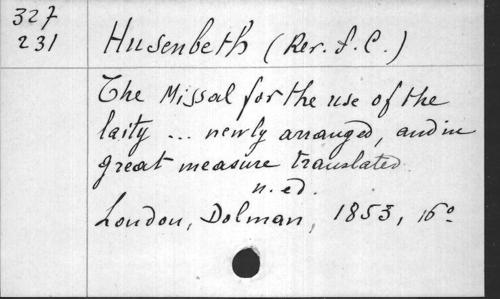 327
231
Husenbeth (Rev. F. C.)
The Missal for the use of the
laity ... newly arranged, and in
great measure translated
n. ed.
London, Dolman, 1853, 16º